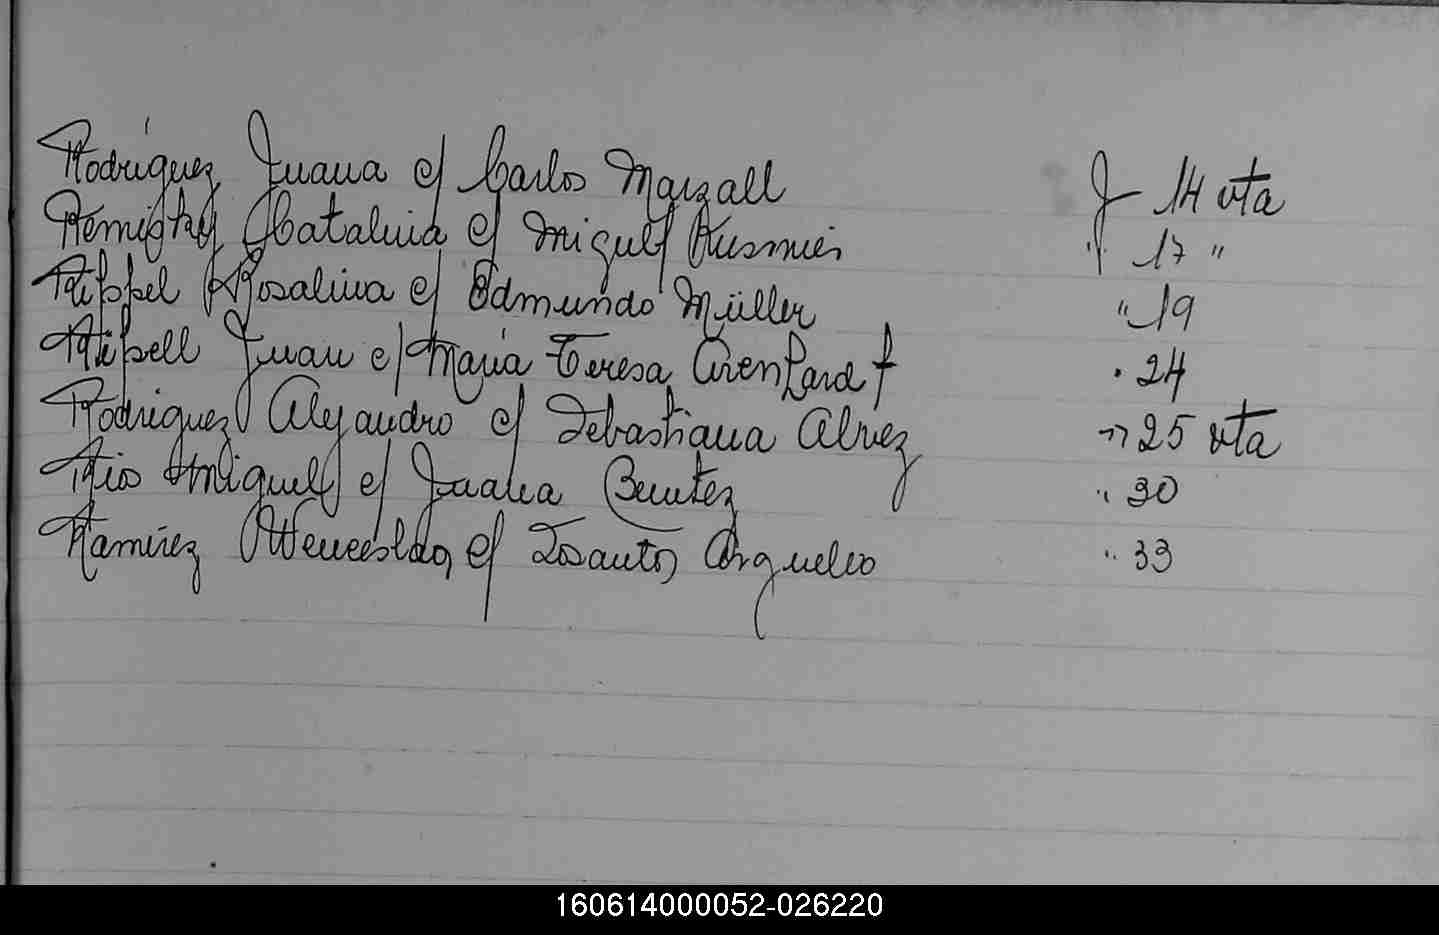 Rodriguez Juana c/ Carlos Marzall F 14 vta
Remigky Catalina c/ Miguel Kusmin " 17 "
Rippel Rosalina c/ Edmundo Müller " 19
Ripsell Juan c/ María Teresa Arenhardt " 24
Rodriguez Alejandro c/ Sebastiana Alvez " 25 vta
Rio Miguel c/ Juana Benitez " 30
Ramírez Wenceslao c/ Dosantos Arguello " 33
160614000052-026220